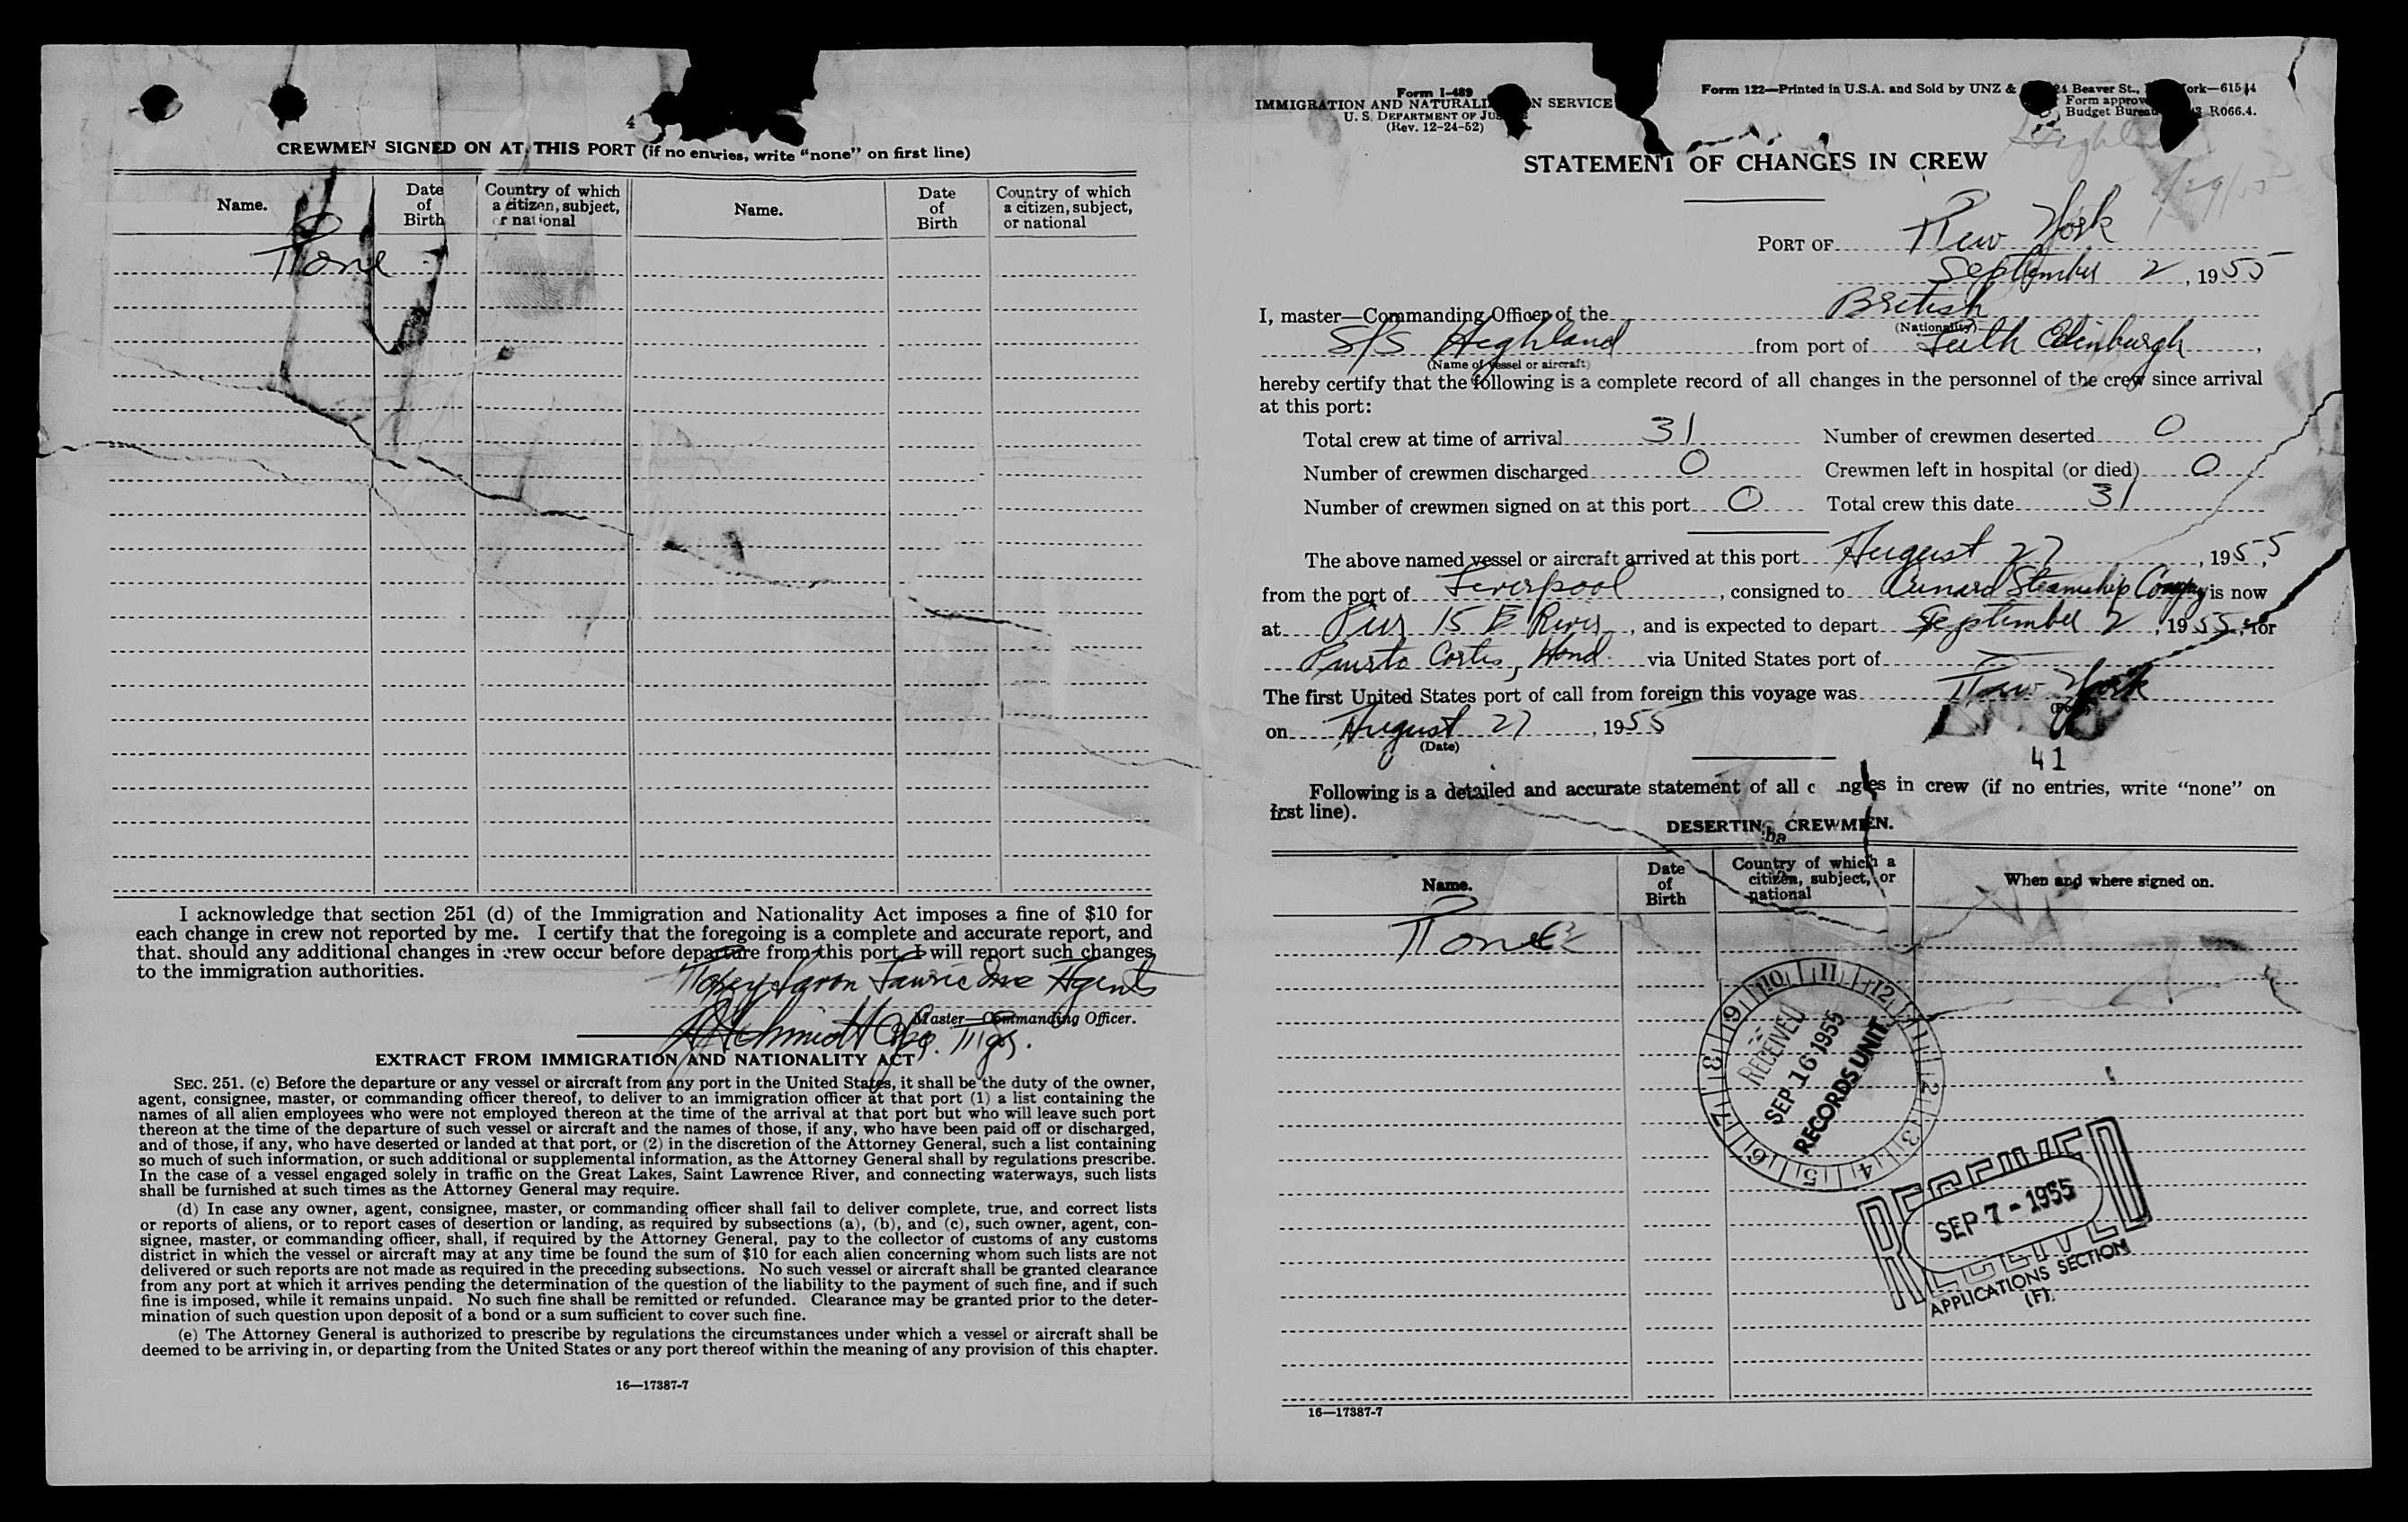 4
CREWMEN SIGNED ON AT THIS PORT (if no entries, write "none" on first line)
Name.
Date of Birth
Country of which a citizen, subject, or national
Name.
Date of Birth
Country of which a citizen, subject, or national
None
I acknowledge that section 251 (d) of the Immigration and Nationality Act imposes a fine of $10 for
each change in crew not reported by me. I certify that the foregoing is a complete and accurate report, and
that should any additional changes in crew occur before departure from this port I will report such changes
to the immigration authorities.
Agents
Master—Commanding Officer.
EXTRACT FROM IMMIGRATION AND NATIONALITY ACT
SEC. 251. (c) Before the departure or any vessel or aircraft from any port in the United States, it shall be the duty of the owner,
agent, consignee, master, or commanding officer thereof, to deliver to an immigration officer at that port (1) a list containing the
names of all alien employees who were not employed thereon at the time of the arrival at that port but who will leave such port
thereon at the time of the departure of such vessel or aircraft and the names of those, if any, who have been paid off or discharged,
and of those, if any, who have deserted or landed at that port, or (2) in the discretion of the Attorney General, such a list containing
so much of such information, or such additional or supplemental information, as the Attorney General shall by regulations prescribe.
In the case of a vessel engaged solely in traffic on the Great Lakes, Saint Lawrence River, and connecting waterways, such lists
shall be furnished at such times as the Attorney General may require.
(d) In case any owner, agent, consignee, master, or commanding officer shall fail to deliver complete, true, and correct lists
or reports of aliens, or to report cases of desertion or landing, as required by subsections (a), (b), and (c), such owner, agent, con-
signee, master, or commanding officer, shall, if required by the Attorney General, pay to the collector of customs of any customs
district in which the vessel or aircraft may at any time be found the sum of $10 for each alien concerning whom such lists are not
delivered or such reports are not made as required in the preceding subsections. No such vessel or aircraft shall be granted clearance
from any port at which it arrives pending the determination of the question of the liability to the payment of such fine, and if such
fine is imposed, while it remains unpaid. No such fine shall be remitted or refunded. Clearance may be granted prior to the deter-
mination of such question upon deposit of a bond or a sum sufficient to cover such fine.
(e) The Attorney General is authorized to prescribe by regulations the circumstances under which a vessel or aircraft shall be
deemed to be arriving in, or departing from the United States or any port thereof within the meaning of any provision of this chapter.
16—17387-7
Form I-489
IMMIGRATION AND NATURALI N SERVICE
U. S. DEPARTMENT OF JUS
(Rev. 12-24-52)
Form 122—Printed in U.S.A. and Sold by UNZ & 24 Beaver St., ork—61544
Form approv
Budget Bureau R066.4.
STATEMENT OF CHANGES IN CREW
PORT OF New York
September 2, 1955
I, master—Commanding Officer of the British
(Nationality)
S/S Highland from port of Leith Edinburgh,
(Name of vessel or aircraft)
hereby certify that the following is a complete record of all changes in the personnel of the crew since arrival
at this port:
Total crew at time of arrival 31 Number of crewmen deserted 0
Number of crewmen discharged 0 Crewmen left in hospital (or died) 0
Number of crewmen signed on at this port 0 Total crew this date 31
The above named vessel or aircraft arrived at this port August 27, 1955,
from the port of Liverpool, consigned to Cunard Steamship Company is now
at Pier 15 E River, and is expected to depart September 2, 1955, for
Puerto Cortes, Hond. via United States port of
The first United States port of call from foreign this voyage was New York
(Port)
on August 27, 1955
(Date)
41
Following is a detailed and accurate statement of all c nges in crew (if no entries, write "none" on
first line).
DESERTING CREWMEN.
ha
Name.
Date of Birth
Country of which a citizen, subject, or national
When and where signed on.
None
RECEIVED
SEP 16 1955
RECORDS UNIT
1 2 3 4 5 6 7 8 9 10 11 12
RECEIVED
SEP 7 - 1955
APPLICATIONS SECTION
(F).
16—17387-7